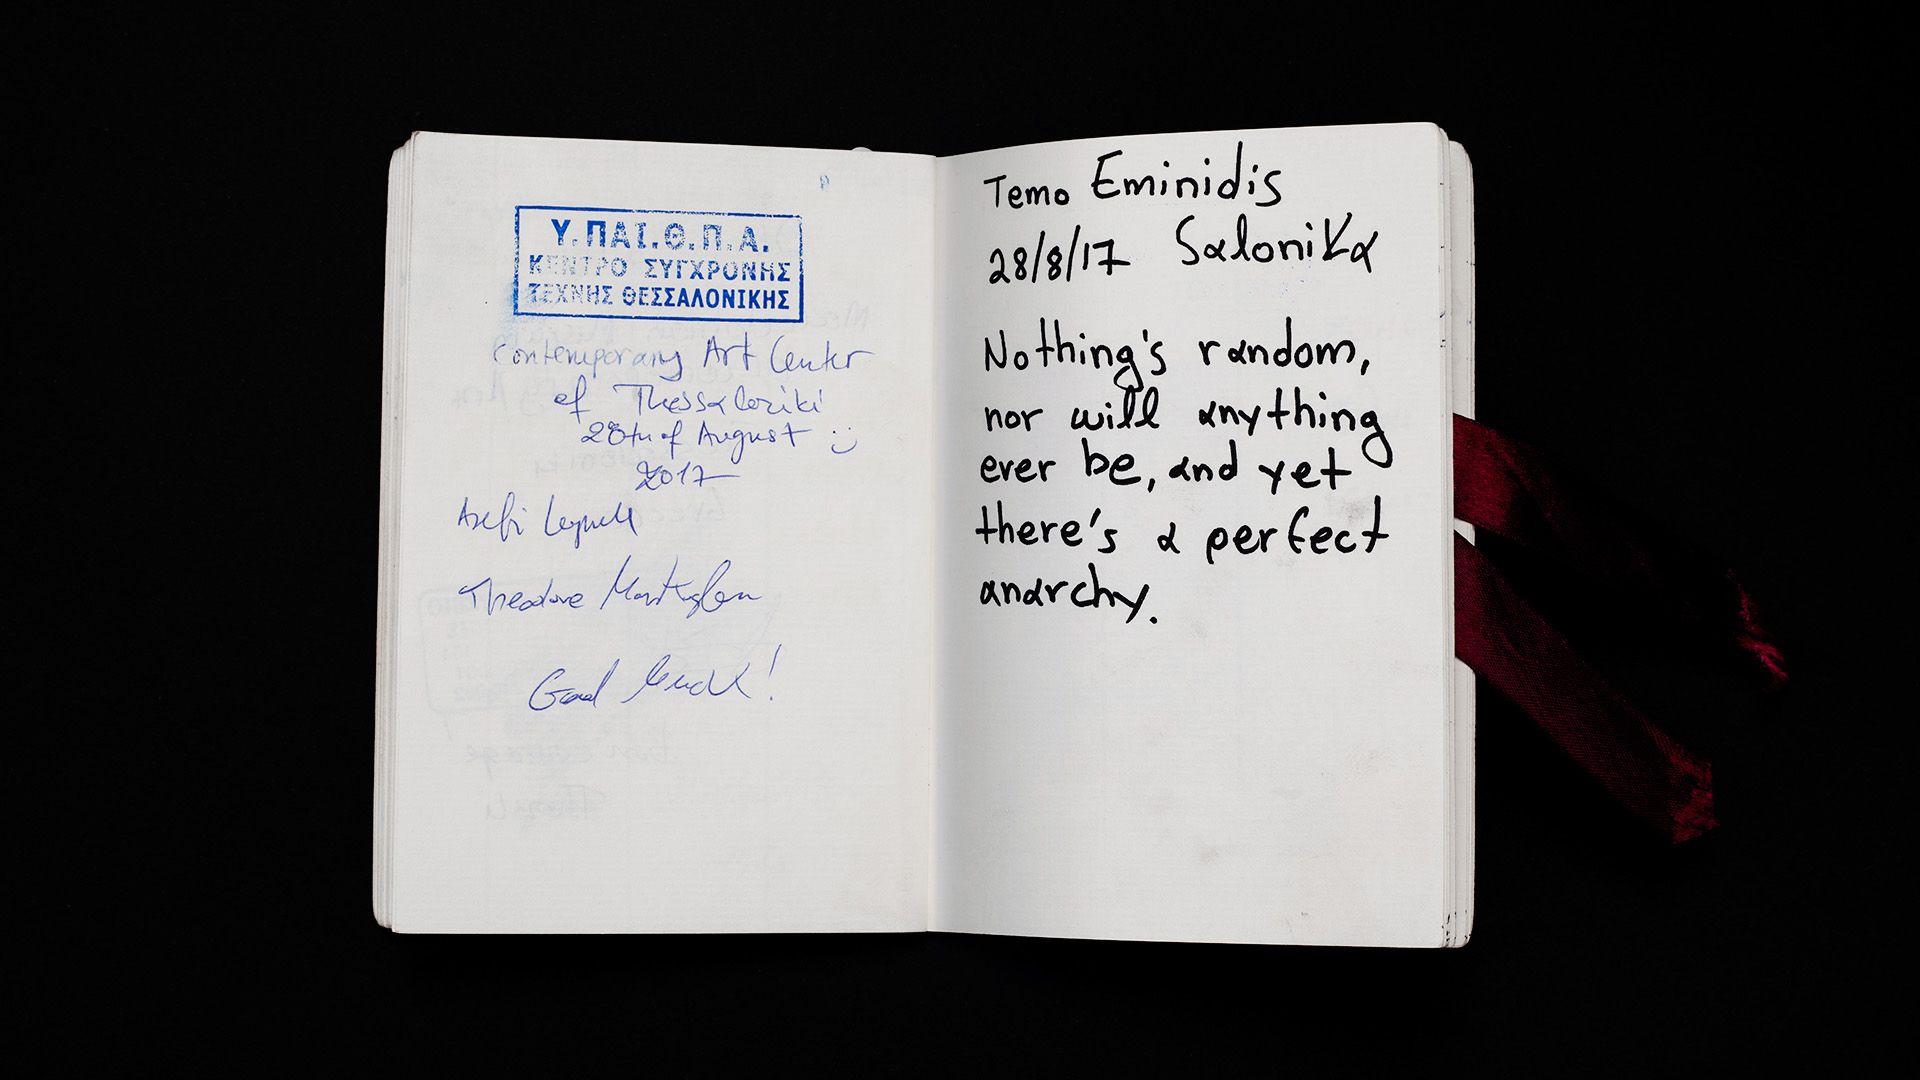 Υ.ΠΑΙ.Θ.Π.Α.
ΚΕΝΤΡΟ ΣΥΓΧΡΟΝΗΣ
ΤΕΧΝΗΣ ΘΕΣΣΑΛΟΝΙΚΗΣ
Contemporary Art Center
of Thessaloniki
28th of August :)
2017
Theodore
Good luck!
Temo Eminidis
28/8/17 Salonika
Nothing's random,
nor will anything
ever be, and yet
there's a perfect
anarchy.